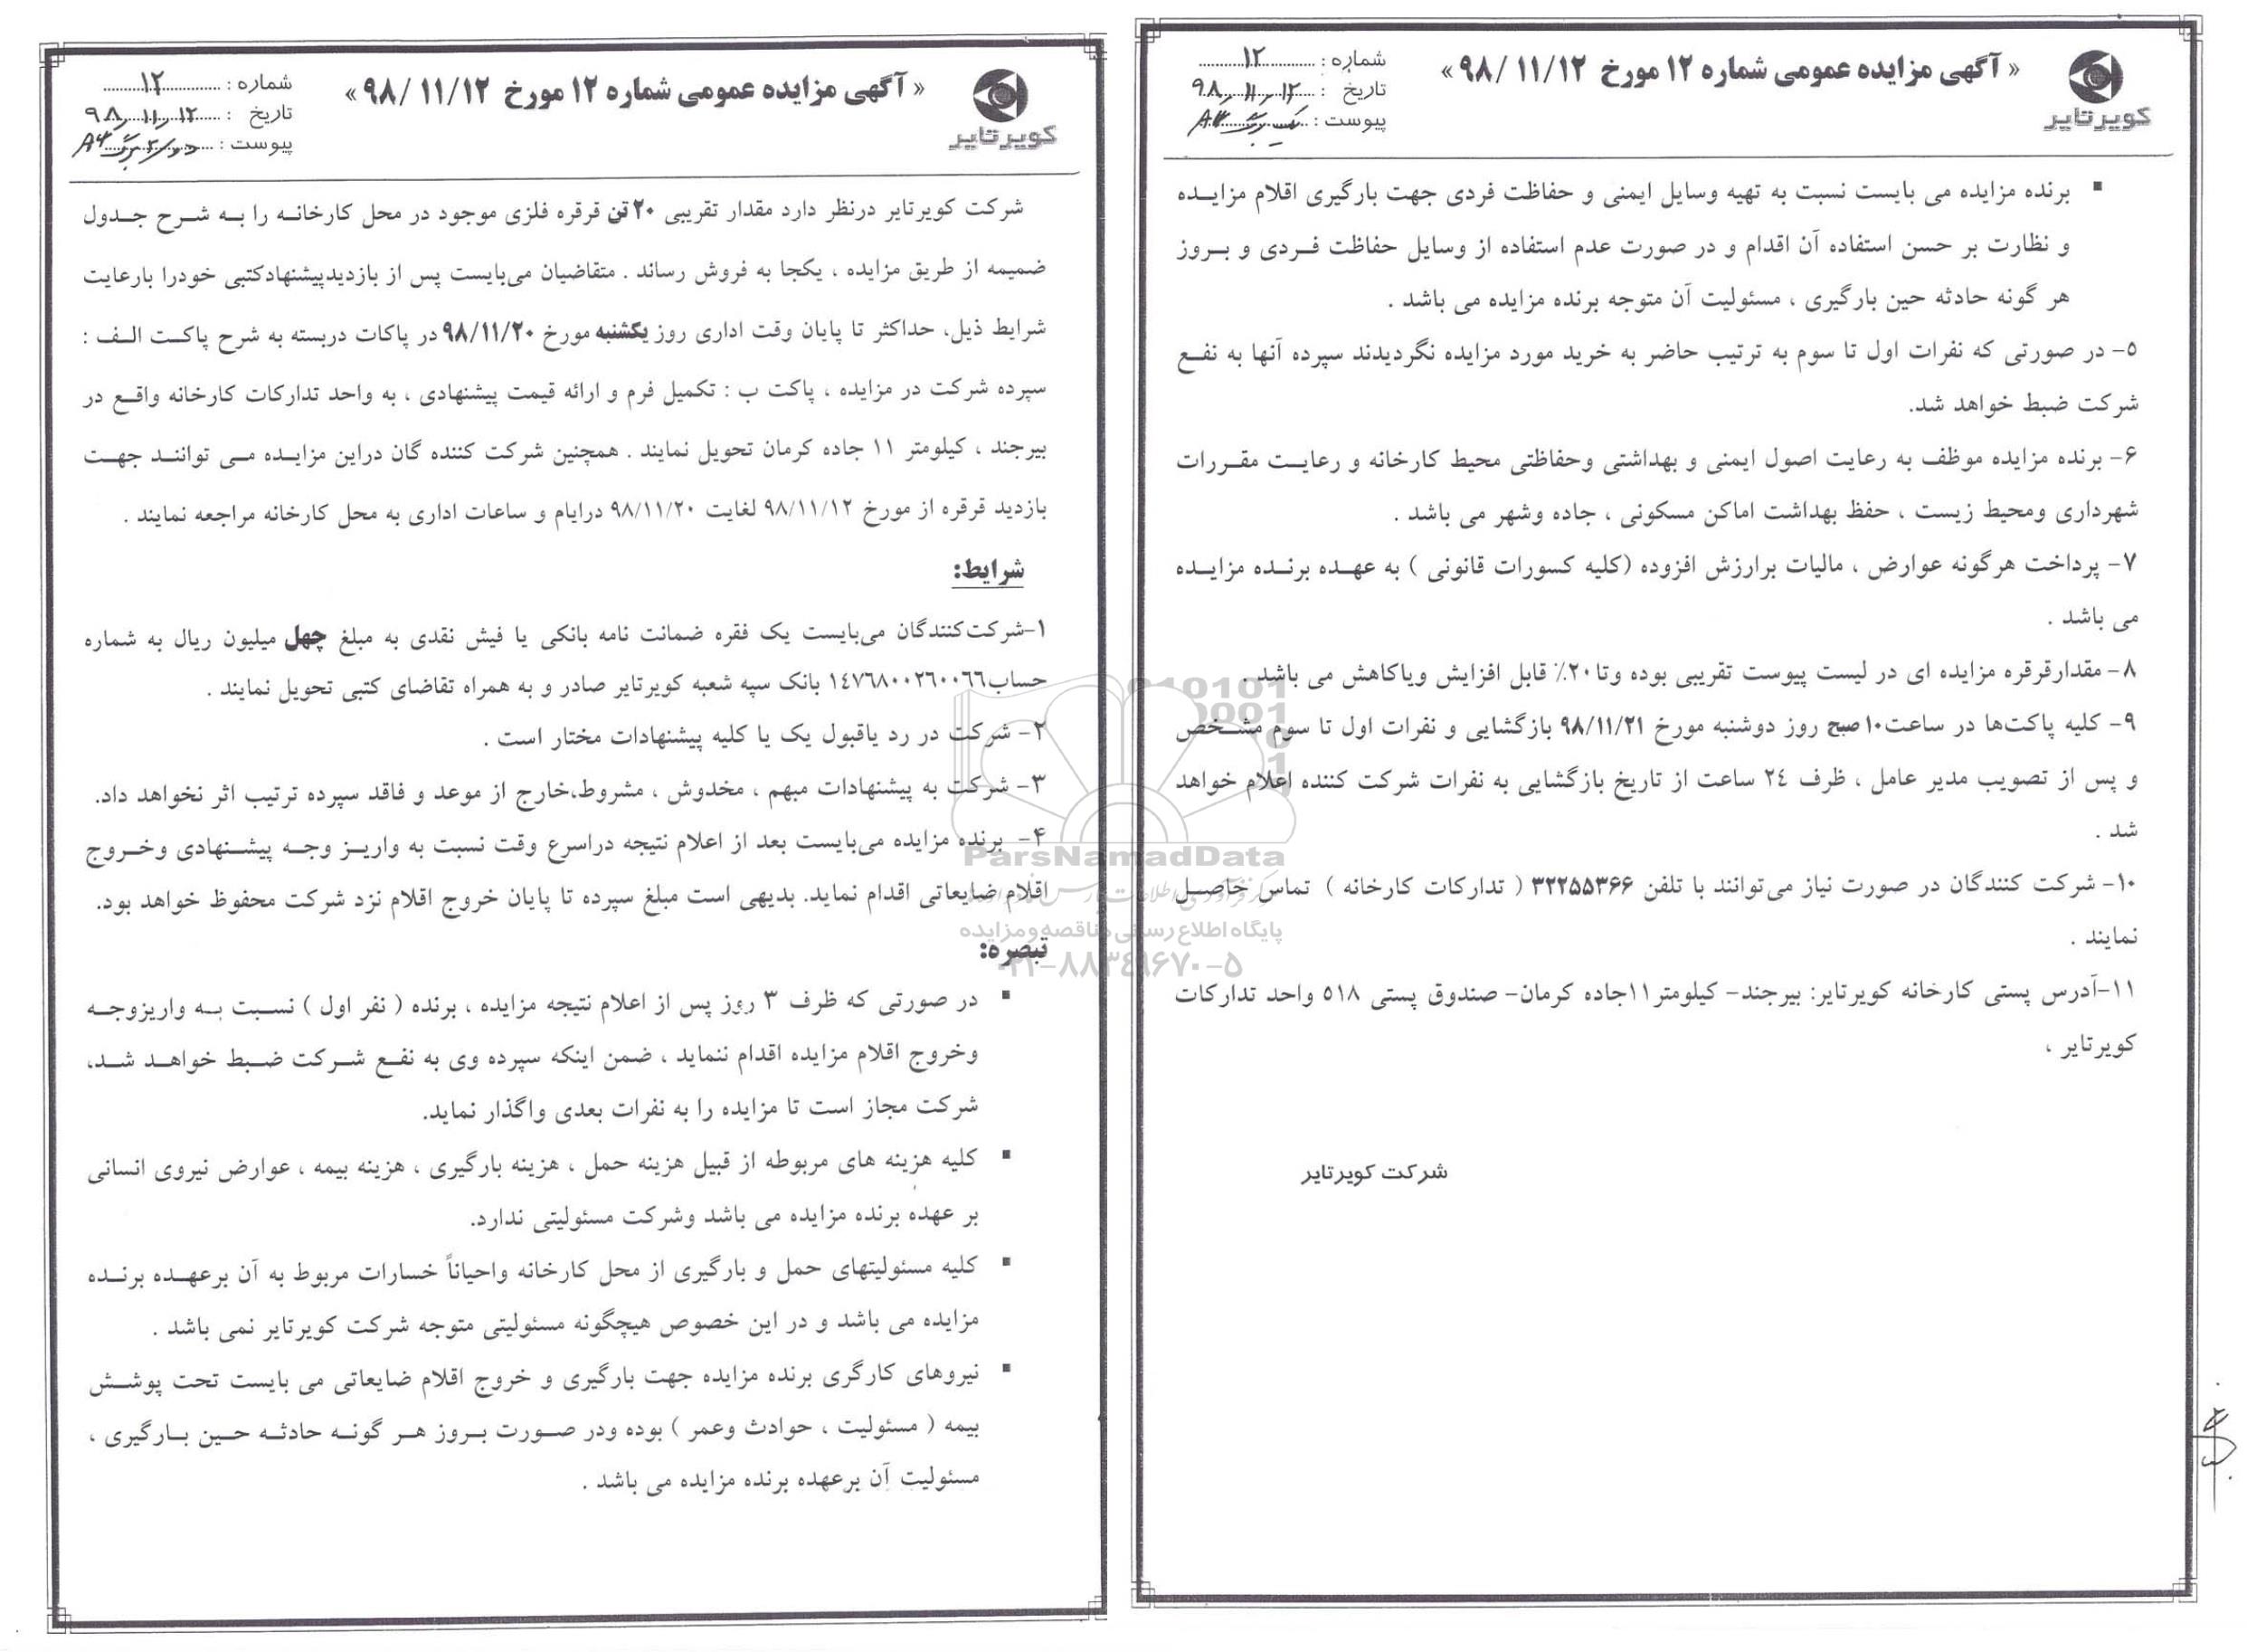 « آگهی مزایده عمومی شماره ۱۲ مورخ ۹۸/۱۱/۱۲ »
کویرتایر
شماره : ۱۲
تاریخ : ۹۸/۱۱/۱۲
پیوست : A4
شرکت کویرتایر درنظر دارد مقدار تقریبی ۲۰ تن قرقره فلزی موجود در محل کارخانه را به شرح جدول
ضمیمه از طریق مزایده ، یکجا به فروش رساند . متقاضیان می‌بایست پس از بازدیدپیشنهادکتبی خودرا بارعایت
شرایط ذیل، حداکثر تا پایان وقت اداری روز یکشنبه مورخ ۹۸/۱۱/۲۰ در پاکات دربسته به شرح پاکت الف :
سپرده شرکت در مزایده ، پاکت ب : تکمیل فرم و ارائه قیمت پیشنهادی ، به واحد تدارکات کارخانه واقع در
بیرجند ، کیلومتر ۱۱ جاده کرمان تحویل نمایند . همچنین شرکت کننده گان دراین مزایده می توانند جهت
بازدید قرقره از مورخ ۹۸/۱۱/۱۲ لغایت ۹۸/۱۱/۲۰ درایام و ساعات اداری به محل کارخانه مراجعه نمایند .
شرایط:
۱-شرکت‌کنندگان می‌بایست یک فقره ضمانت نامه بانکی یا فیش نقدی به مبلغ چهل میلیون ریال به شماره
حساب۱٤۷٦۸۰۰۲٦۰۰٦٦ بانک سپه شعبه کویرتایر صادر و به همراه تقاضای کتبی تحویل نمایند .
۲- شرکت در رد یاقبول یک یا کلیه پیشنهادات مختار است .
۳- شرکت به پیشنهادات مبهم ، مخدوش ، مشروط،خارج از موعد و فاقد سپرده ترتیب اثر نخواهد داد.
۴- برنده مزایده می‌بایست بعد از اعلام نتیجه دراسرع وقت نسبت به واریز وجه پیشنهادی وخروج
اقلام ضایعاتی اقدام نماید. بدیهی است مبلغ سپرده تا پایان خروج اقلام نزد شرکت محفوظ خواهد بود.
تبصره:
▪ در صورتی که ظرف ۳ روز پس از اعلام نتیجه مزایده ، برنده ( نفر اول ) نسبت به واریزوجه
وخروج اقلام مزایده اقدام ننماید ، ضمن اینکه سپرده وی به نفع شرکت ضبط خواهد شد،
شرکت مجاز است تا مزایده را به نفرات بعدی واگذار نماید.
▪ کلیه هزینه های مربوطه از قبیل هزینه حمل ، هزینه بارگیری ، هزینه بیمه ، عوارض نیروی انسانی
بر عهده برنده مزایده می باشد وشرکت مسئولیتی ندارد.
▪ کلیه مسئولیتهای حمل و بارگیری از محل کارخانه واحیاناً خسارات مربوط به آن برعهده برنده
مزایده می باشد و در این خصوص هیچگونه مسئولیتی متوجه شرکت کویرتایر نمی باشد .
▪ نیروهای کارگری برنده مزایده جهت بارگیری و خروج اقلام ضایعاتی می بایست تحت پوشش
بیمه ( مسئولیت ، حوادث وعمر ) بوده ودر صورت بروز هر گونه حادثه حین بارگیری ،
مسئولیت آن برعهده برنده مزایده می باشد .
« آگهی مزایده عمومی شماره ۱۲ مورخ ۹۸/۱۱/۱۲ »
کویرتایر
شماره : ۱۲
تاریخ : ۹۸/۱۱/۱۲
پیوست : یک برگ A4
▪ برنده مزایده می بایست نسبت به تهیه وسایل ایمنی و حفاظت فردی جهت بارگیری اقلام مزایده
و نظارت بر حسن استفاده آن اقدام و در صورت عدم استفاده از وسایل حفاظت فردی و بروز
هر گونه حادثه حین بارگیری ، مسئولیت آن متوجه برنده مزایده می باشد .
۵- در صورتی که نفرات اول تا سوم به ترتیب حاضر به خرید مورد مزایده نگردیدند سپرده آنها به نفع
شرکت ضبط خواهد شد.
۶- برنده مزایده موظف به رعایت اصول ایمنی و بهداشتی وحفاظتی محیط کارخانه و رعایت مقررات
شهرداری ومحیط زیست ، حفظ بهداشت اماکن مسکونی ، جاده وشهر می باشد .
۷- پرداخت هرگونه عوارض ، مالیات برارزش افزوده (کلیه کسورات قانونی ) به عهده برنده مزایده
می باشد .
۸- مقدارقرقره مزایده ای در لیست پیوست تقریبی بوده وتا۲۰٪ قابل افزایش ویاکاهش می باشد .
۹- کلیه پاکت‌ها در ساعت۱۰صبح روز دوشنبه مورخ ۹۸/۱۱/۲۱ بازگشایی و نفرات اول تا سوم مشخص
و پس از تصویب مدیر عامل ، ظرف ۲٤ ساعت از تاریخ بازگشایی به نفرات شرکت کننده اعلام خواهد
شد .
۱۰- شرکت کنندگان در صورت نیاز می‌توانند با تلفن ۳۲۲۵۵۳۶۶ ( تدارکات کارخانه ) تماس حاصل
نمایند .
۱۱-آدرس پستی کارخانه کویرتایر: بیرجند- کیلومتر۱۱جاده کرمان- صندوق پستی ۵۱۸ واحد تدارکات
کویرتایر ،
شرکت کویرتایر
ParsNamadData
پایگاه اطلاع رسانی مناقصه ومزایده
۰۲۱-۸۸۳۴۹۶۷۰-۵